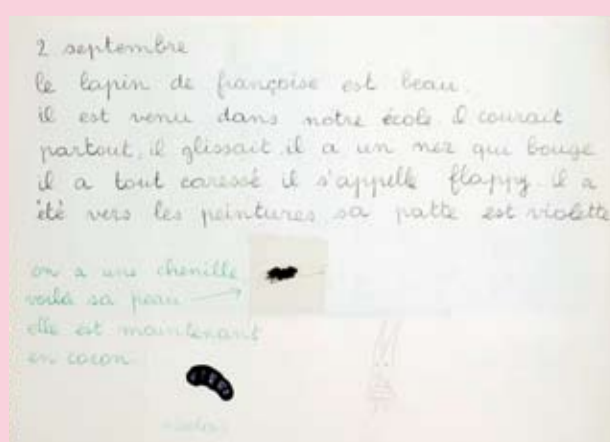 2 septembre
le lapin de françoise est beau.
il est venu dans notre école. il courait
partout, il glissait. il a un nez qui bouge
il a tout caressé il s'appelle flappy. il a
été vers les peintures sa patte est violette
on a une chenille
voilà sa peau
elle est maintenant
en cocon